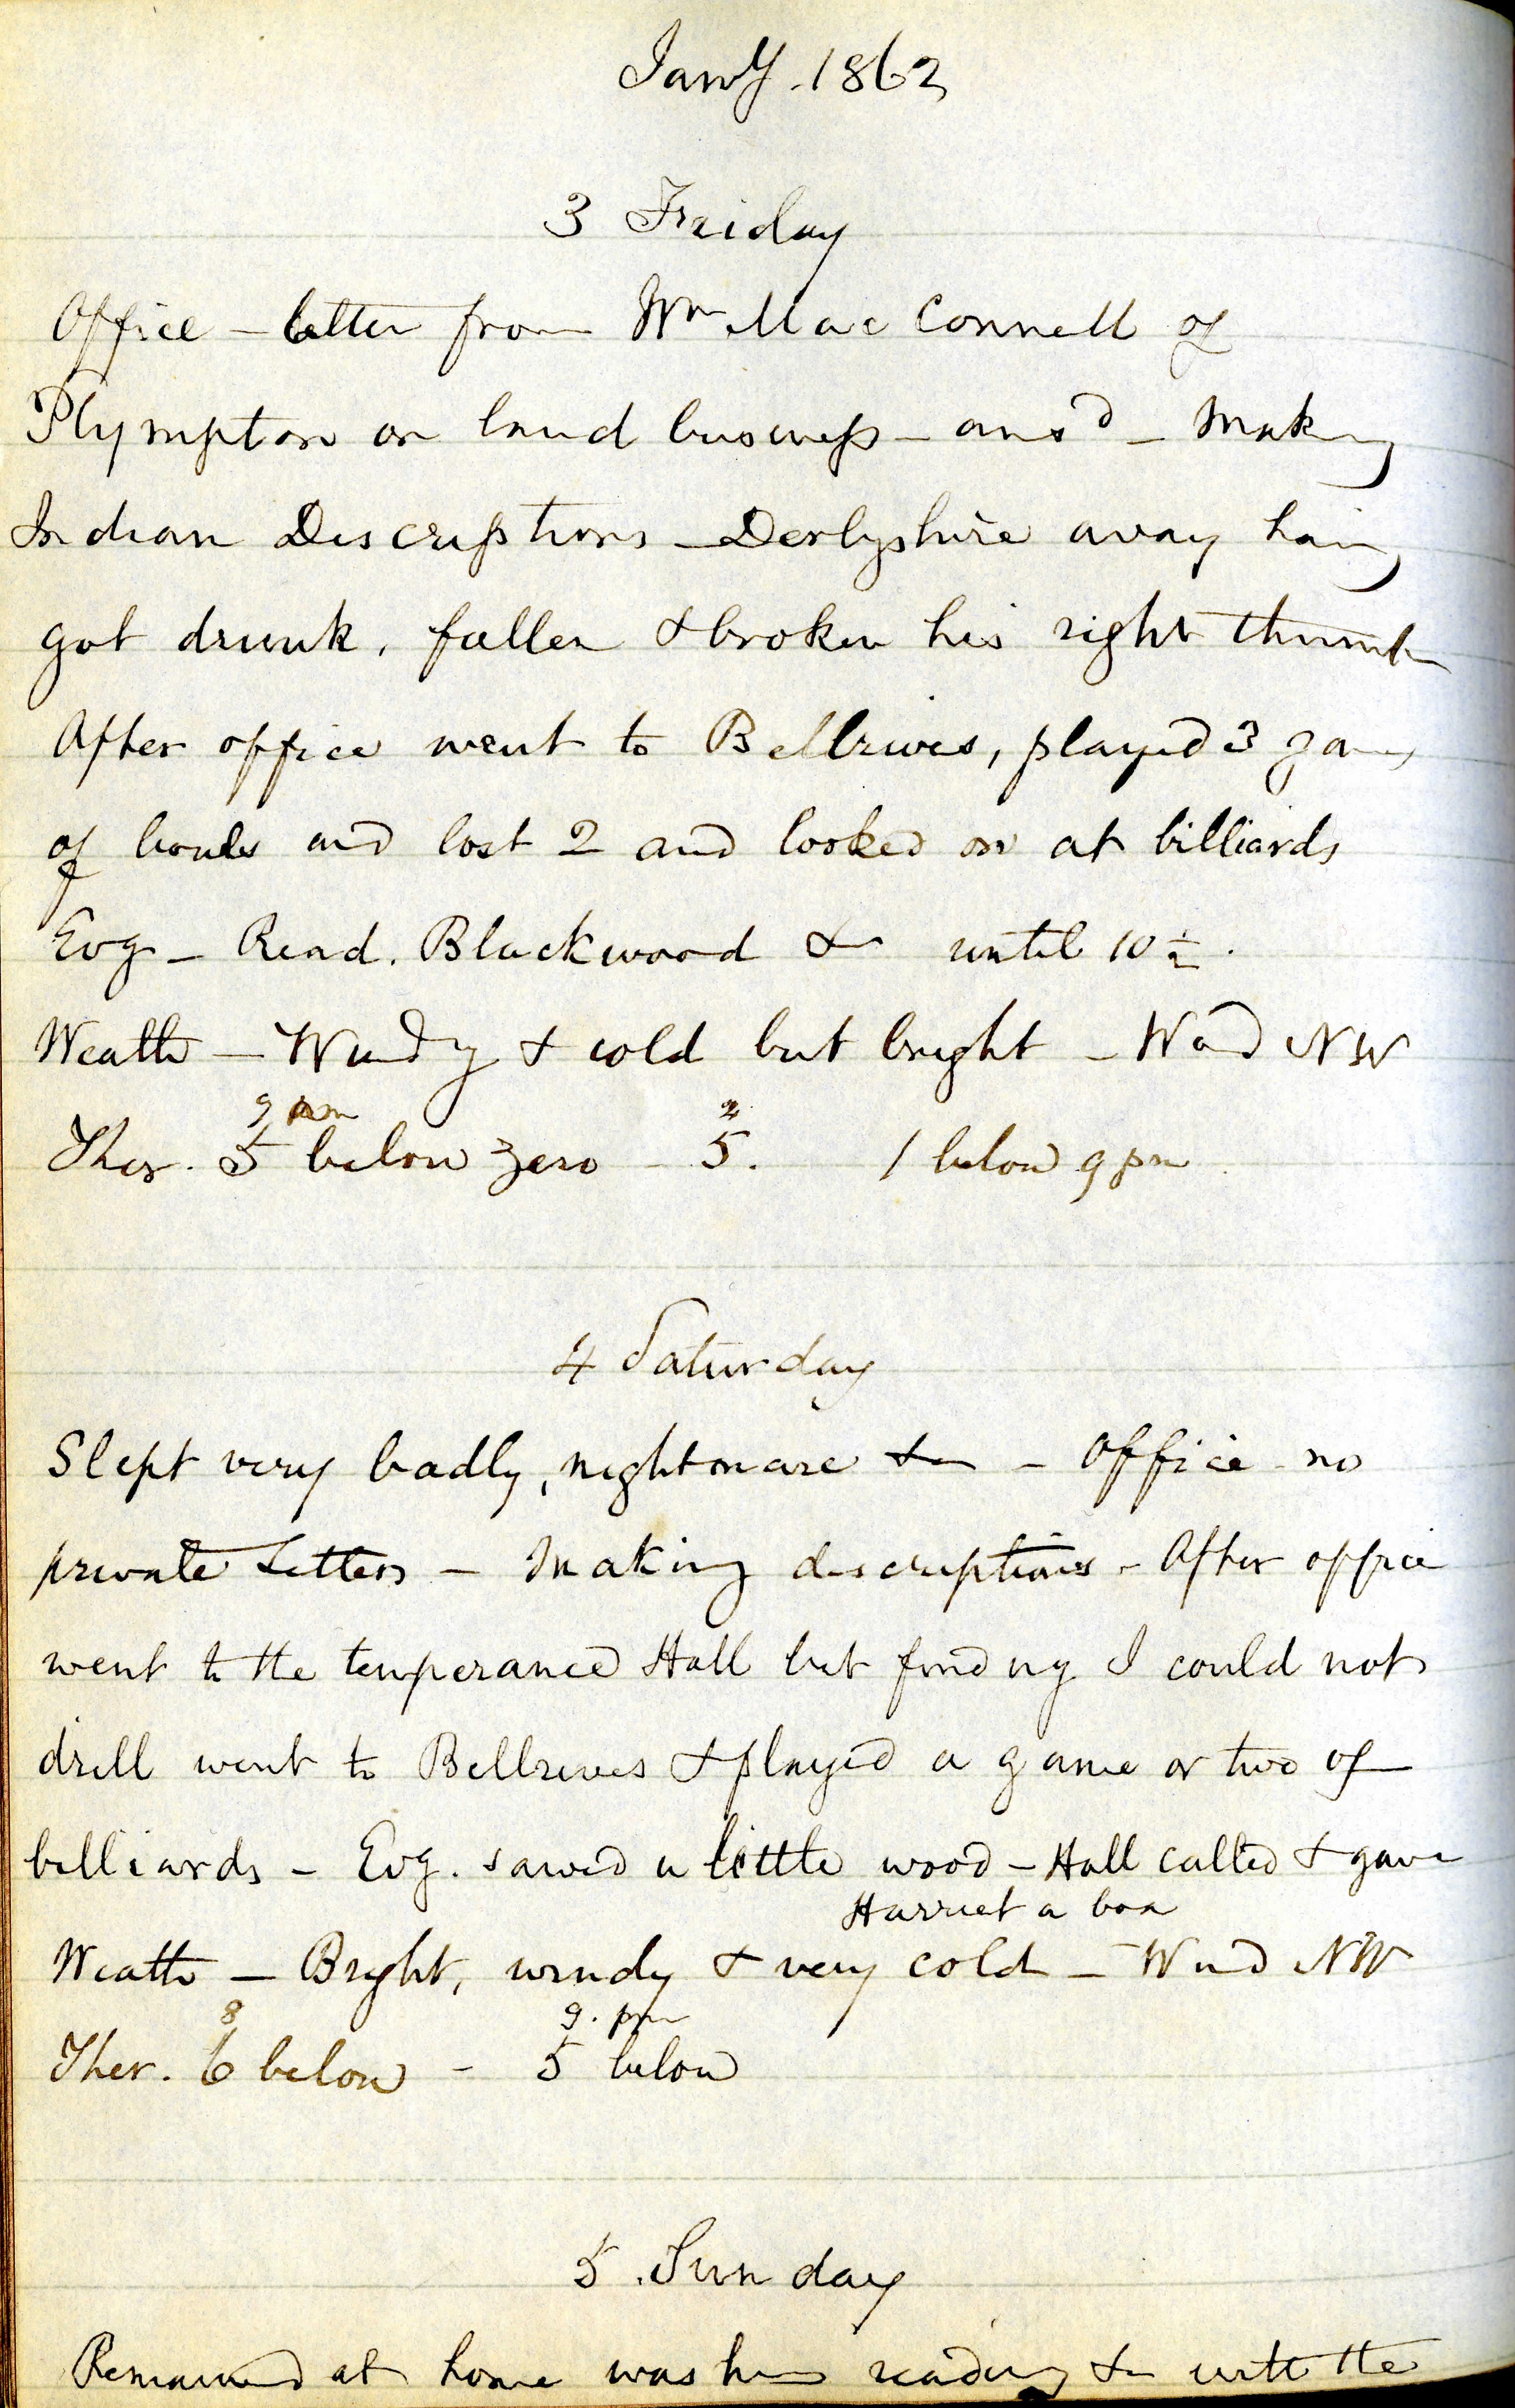 Jany. 1862
3 Friday
Office – letter from Wm MacConnell of
Plympton on land business – ansd – Making
Indian Descriptions – Derbyshire away havg
got drunk, fallen & broken his right thumb
After office went to Bellrives, played 3 games
of bowls and lost 2 and looked on at billiards
Evg – Read. Blackwood &c until 10 1/2.
Weathr – Windy & cold but bright – Wind NW
9 am 2
Ther. 5 below zero – 5. 1 below 9 pm
4 Saturday
Slept very badly, nightmare &c – Office no
private Letters – Making descriptions – After office
went to the temperance Hall but finding I could not
drill went to Bellreives & played a game or two of
billiards – Evg. sawed a little wood – Hall called & gave
Harriet a box
Weathr – Bright, windy & very cold – Wind NW
8 9. pm
Ther. 6 below – 5 below
5. Sunday
Remained at home reading &c with the